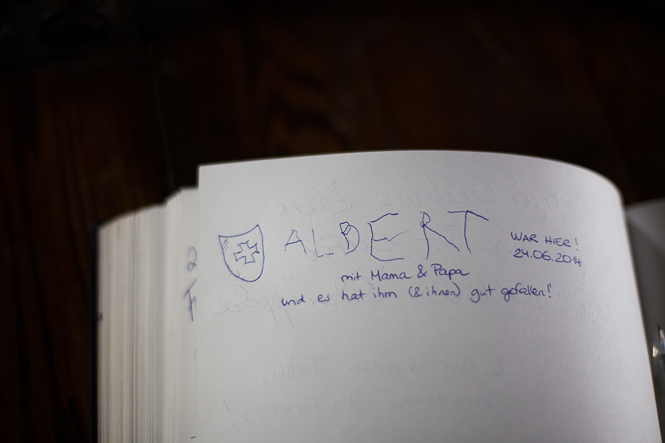 ALBERT WAR HIER!
24.06.2014
mit Mama & Papa
und es hat ihm (& ihnen) gut gefallen!